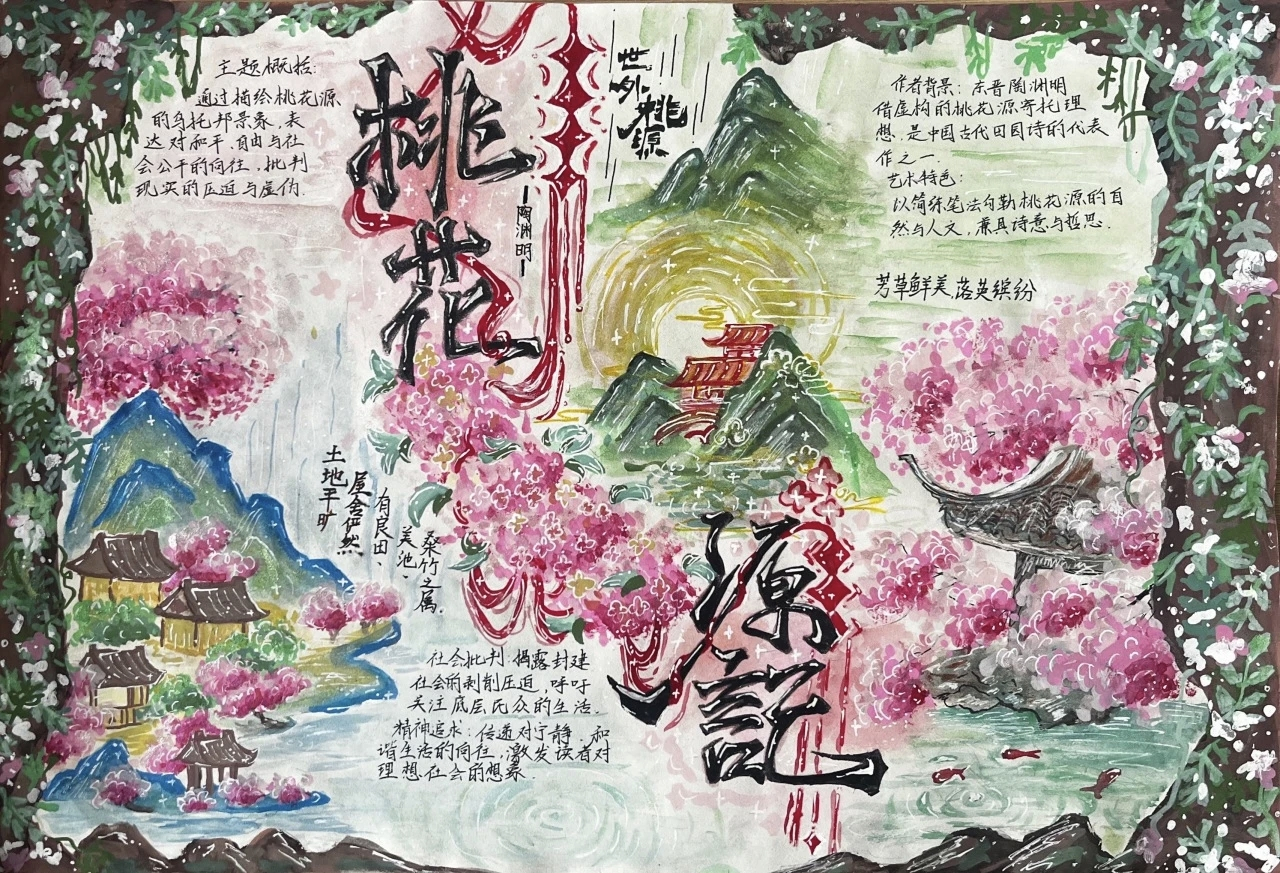 主题概括:
通过描绘桃花源
的乌托邦景象,表
达对和平、自由与社
会公平的向往,批判
现实的压迫与虚伪.
桃花
源記
—陶渊明—
世外桃源
作者背景:东晋陶渊明
借虚构的桃花源寄托理
想.是中国古代田园诗的代表
作之一.
艺术特色:
以简练笔法勾勒桃花源的自
然与人文,兼具诗意与哲思.
芳草鲜美,落英缤纷
土地平旷
屋舍俨然
有良田、
美池、
桑竹之属.
社会批判:揭露封建
社会的剥削压迫,呼吁
关注底层民众的生活.
精神追求:传递对宁静.和
谐生活的向往,激发读者对
理想社会的想象.